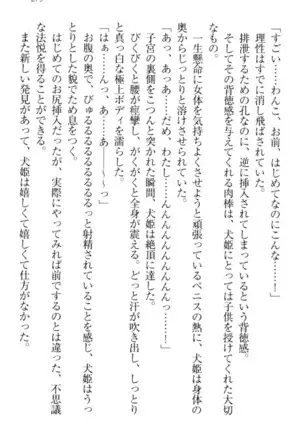 「すごい……わんこ、お前、はじめてなのにこんな……！」
理性はすでに消し飛ばされていた。
排泄するための孔なのに、逆に挿入されているという背徳感。
そしてその背徳感を与えてくれる肉棒は、犬姫にとっては子供を授けてくれた大切
なもの。
一生懸命に女体を気持ちよくさせようと頑張っているペニスの熱に、犬姫は身体の
奥からじっとりと溶けさせられていた。
「あっ、あっ……だめ、わたし……んんんんんんっ……！」
子宮の裏側をこつんと突かれた瞬間、犬姫は絶頂に達した。
びくびくと腰が痙攣し、がくがくと全身が震える。どっと汗が吹き出し、しっとり
と真っ白な極上ボディを濡らした。
「はぁ……んっ、あ……あ――～っ」
お腹の奥で、びゅるるるるるるるるるっと射精されていることを感じ、犬姫はうっ
とりとした顔でため息をつく。
はじめてのお尻挿入だったが、実際にやってみれば前でするのとは違った、不思議
な法悦を得ることができる。
また新しい発見があって、犬姫は嬉しくて嬉しくて仕方がなかった。